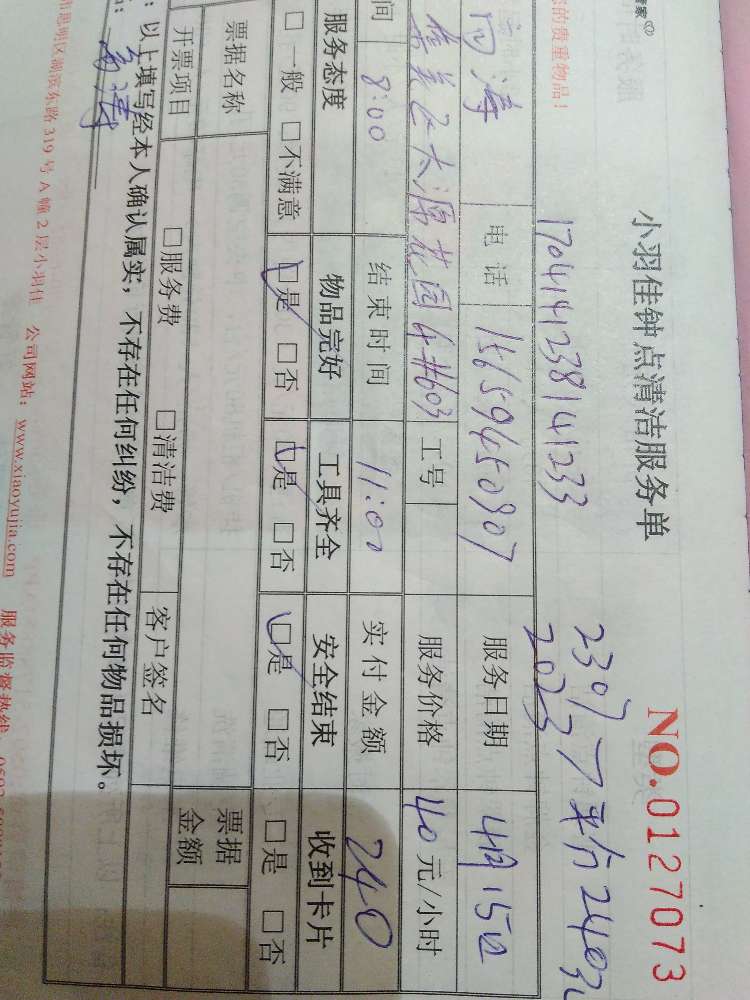 管家
小羽佳钟点清洁服务单
NO.0127073
您的贵重物品！
1704141238141233
电话 15659450907 服务日期 4月15日
集美区大源花园4#603 工号 服务价格 40元/小时
间 8:00 结束时间 11:00 实付金额 240
服务态度 物品完好 工具齐全 安全结束 收到卡片
□一般 □不满意 □是 □否 □是 □否 □是 □否 □是 □否
票据名称 票据金额
开票项目 □服务费 □清洁费 客户签名
：以上填写经本人确认属实，不存在任何纠纷，不存在任何物品损坏。
市思明区湖滨东路 319 号 A 幢 2 层小羽佳 公司网站：www.xiaoyujia.com 服务监督热线：0592